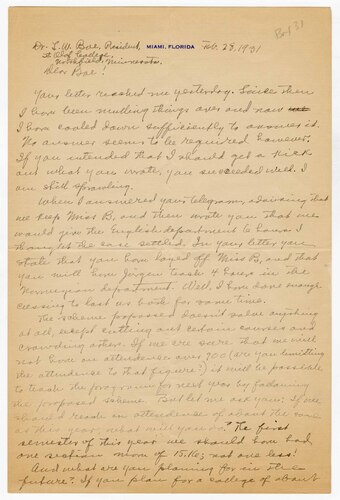 Bx 31
MIAMI, FLORIDA Feb. 28, 1931
Dr. L. W. Boe, President,
St Olaf College,
Northfield, Minnesota.
Dear Boe!
Your letter reached me yesterday. Since then
I have been mulling things over and now
I have cooled down sufficiently to answer it.
No answer seems to be required however.
If you intended that I should get a kick
out what you wrote, you succeeded well. I
am still sprawling.
When I answered your telegram, advising that
we keep Miss B, and then wrote you that we
would give the English department 6 hours I
thought the case settled. In your letter you
state that you have layed off Miss B, and that
you will have Jörgen teach 4 hours in the
Norwegian department. Well, I have done enough
cussing to last us both for some time.
The scheme proposed doesn't solve anything
at all, except cutting out certain courses and
crowding others. If we are sure that we will
not have an attendance over 700 (are you limiting
the attendance to that figure?) it will be possible
to teach the program for next year by following
the proposed scheme. But let me ask you: If we
should reach an attendance of about the same
as this year, what will you do? The first
semester of this year we should have had
one section more of 15.16; not one less!
And what are you planning for in the
future? If you plan for a college of about